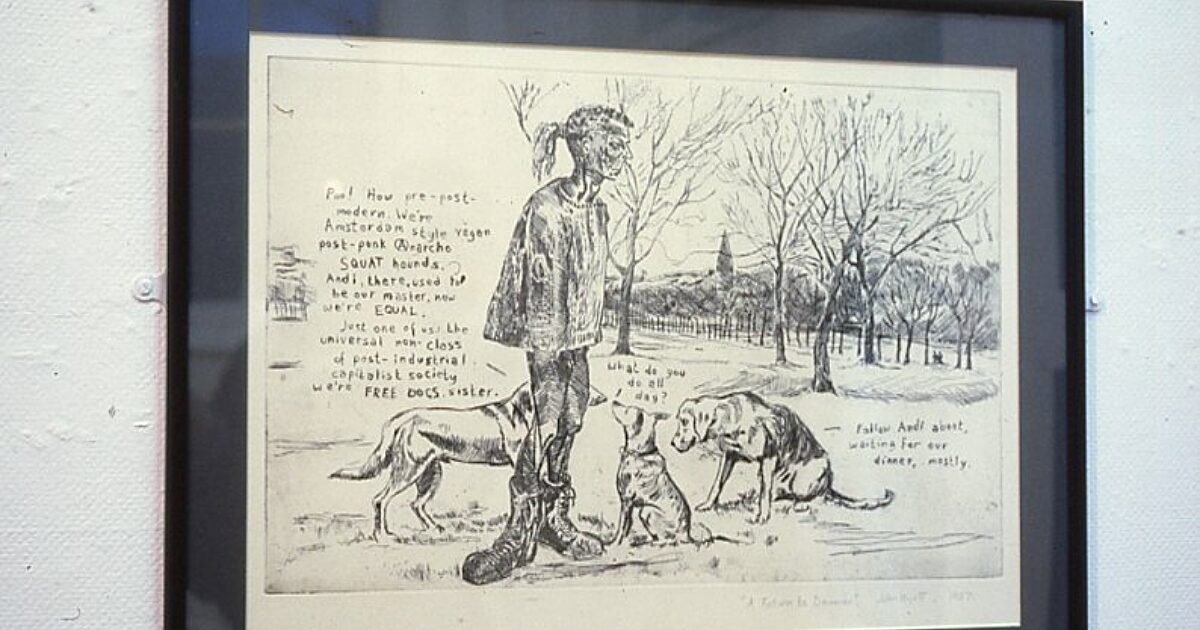 Poo! How pre-post-
modern. We're
Amsterdam style vegan
post-punk Anarcho
SQUAT hounds.
Andi, there, used to
be our master, now
we're EQUAL.
Just one of us: the
universal non-class
of post-industrial
capitalist society
we're FREE DOGS, sister.
what do you
do all
day?
— Follow Andi about,
waiting for our
dinner, mostly.
"A 1987